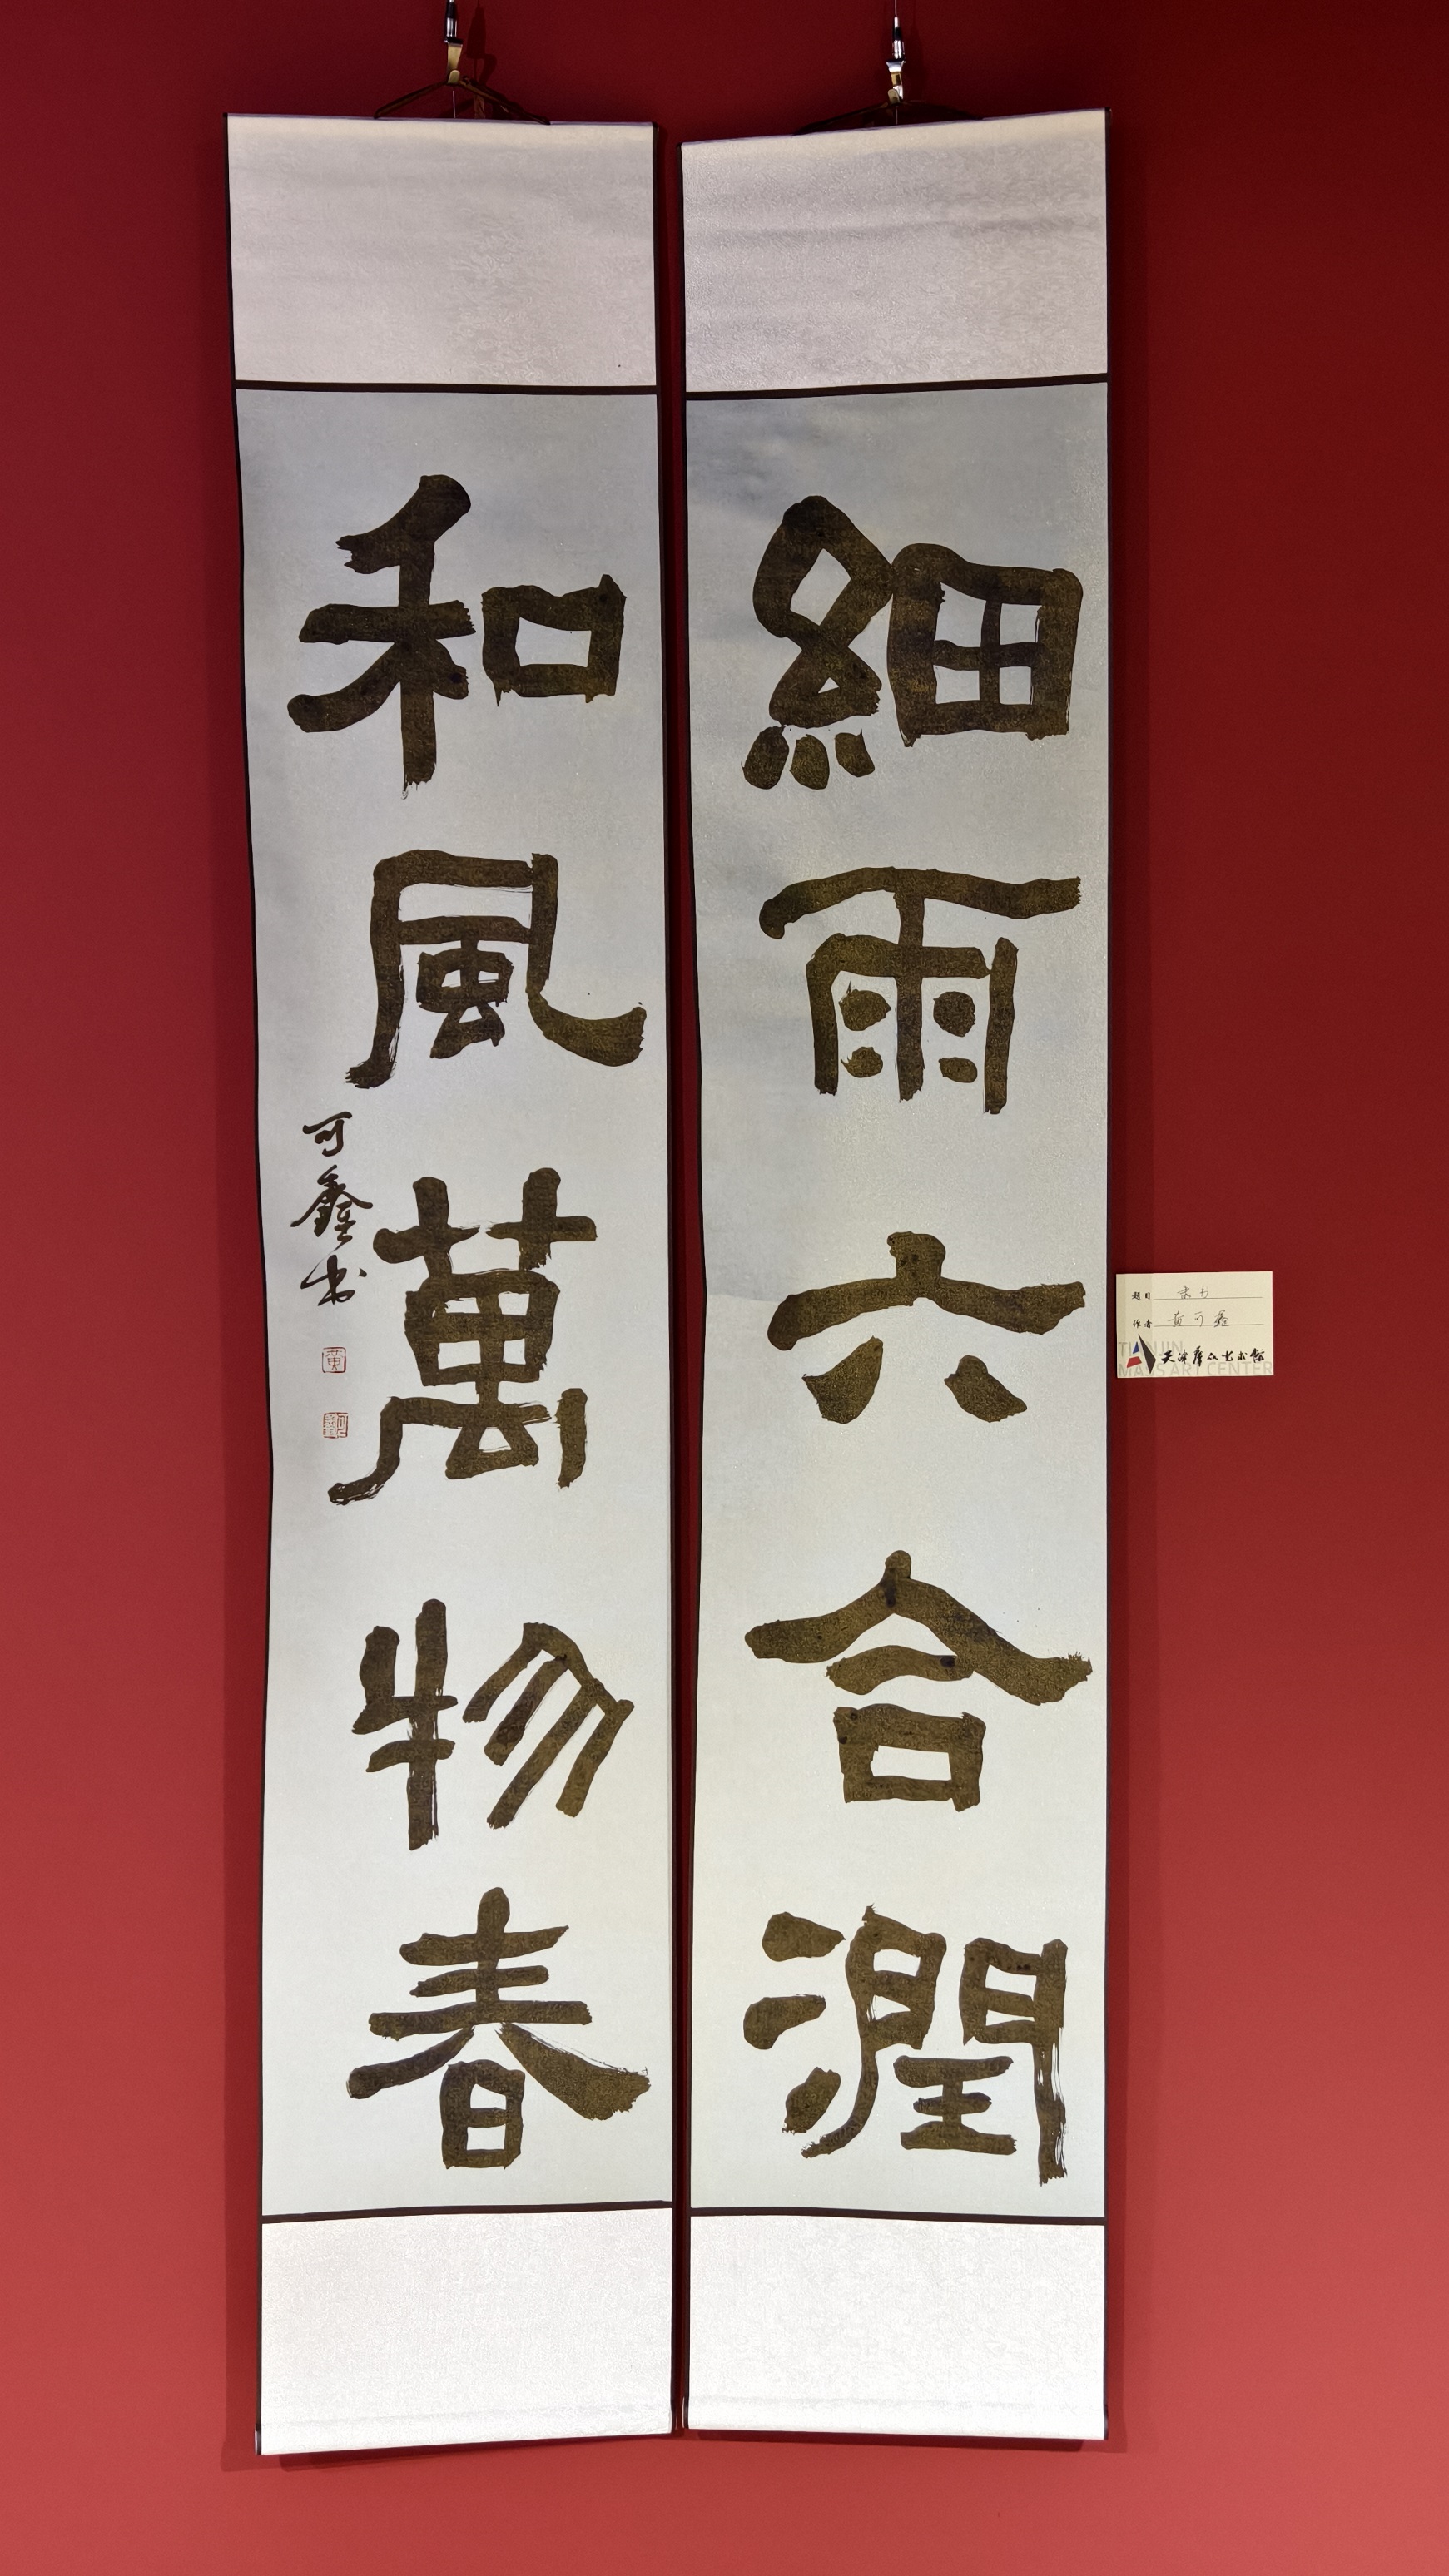 細雨六合潤
和風萬物春
可鑫书
黄
題目 隶书
作者 黄可鑫
天津群众艺术馆
TIANJIN
MASS ART CENTER